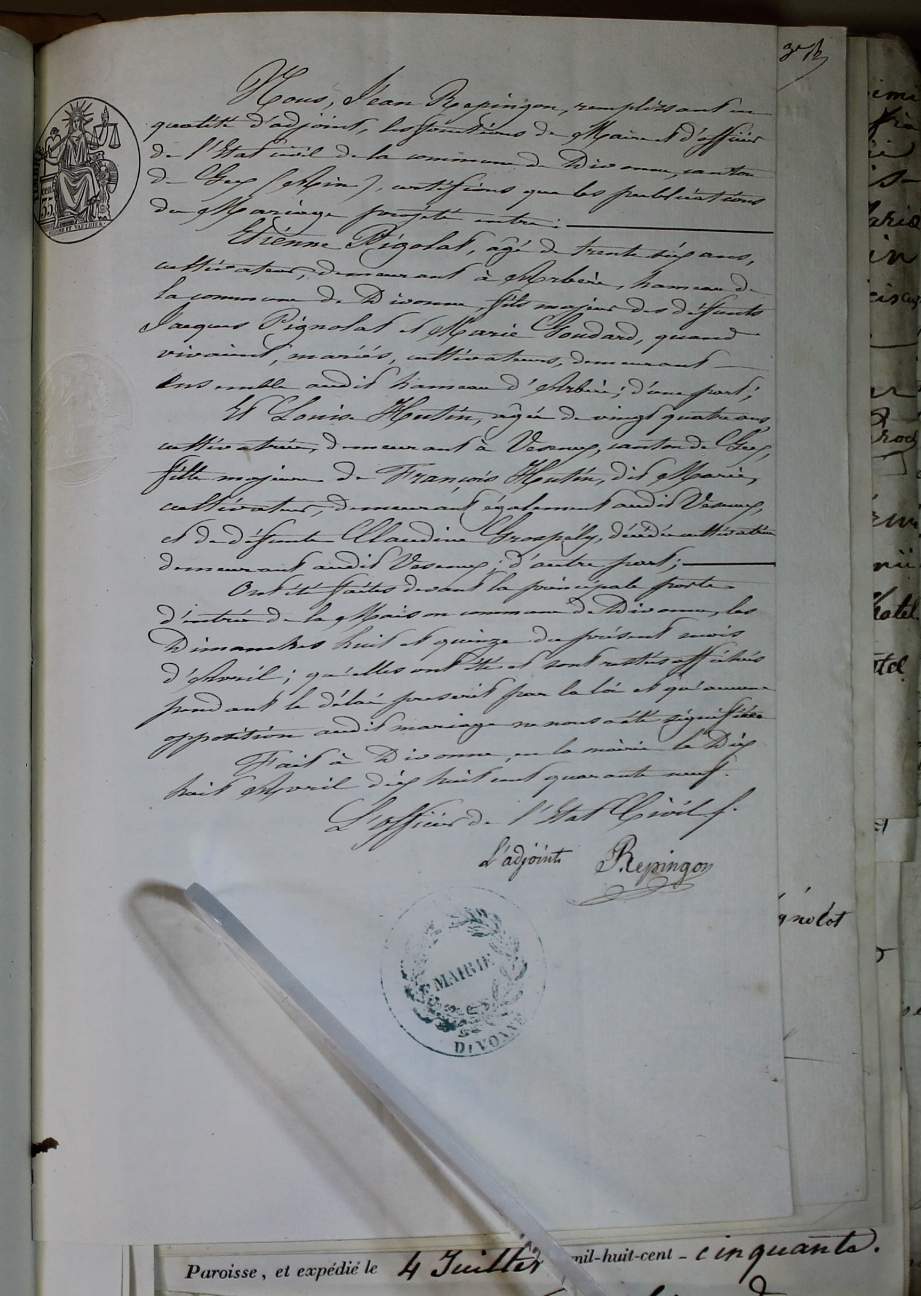 Nous, Jean Repingon, remplissant en
qualité d'adjoint, les fonctions de Maire et d'officier
de l'Etat civil de la commune de Divonne, canton
de Gex (Ain), certifions que les publications
du Mariage projeté entre:
Etienne Pignolat, agé de trente six ans,
cultivateur, demeurant à Arbère, hameau de
la commune de Divonne, fils majeur des défunts
Jacques Pignolat et Marie Goudard, quand
vivaient, mariés, cultivateurs, demeurant
ensemble audit hameau d'Arbère; d'une part;
Et Louise Hutin, agée de vingt quatre ans,
cultivatrice, demeurant à Vesency, canton de Gex,
fille majeure de François Hutin, dit Marin,
cultivateur, demeurant également audit Vesency,
et de défunte Claudine Grospély, décédée cultivatrice
demeurant audit Vesency; d'autre part;
Ont été faites devant la principale porte
d'entrée de la Maison commune de Divonne, les
Dimanches huit et quinze du présent mois
d'Avril; qu'elles ont été et sont restées affichées
pendant le délai prescrit par la loi et qu'aucune
opposition audit mariage ne nous a été signifiée
Fait à Divonne, en la mairie le Dix
huit Avril dix huit cent quarante neuf.
L'officier de l'Etat Civil f.
L'adjoint Repingon
MAIRIE
DIVONNE
gnolot
Paroisse, et expédié le 4 Juillet mil-huit-cent - cinquante.